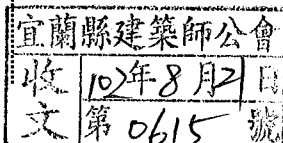 宜蘭縣建築師公會
收文
102年8月21日
第0615號